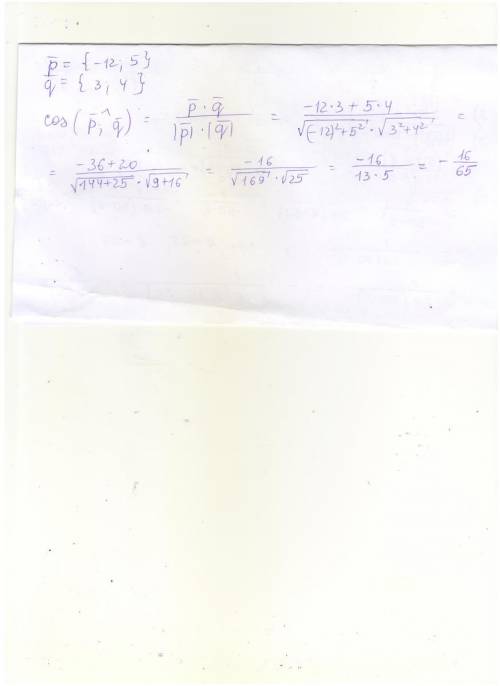 p̅ = {-12; 5}
q̅ = {3, 4}
cos(p̅,^ q̅) = p̅·q̅ / |p̅|·|q̅| = -12·3 + 5·4 / √(-12)²+5² · √3²+4² =
= -36+20 / √144+25 · √9+16 = -16 / √169 · √25 = -16 / 13·5 = - 16/65